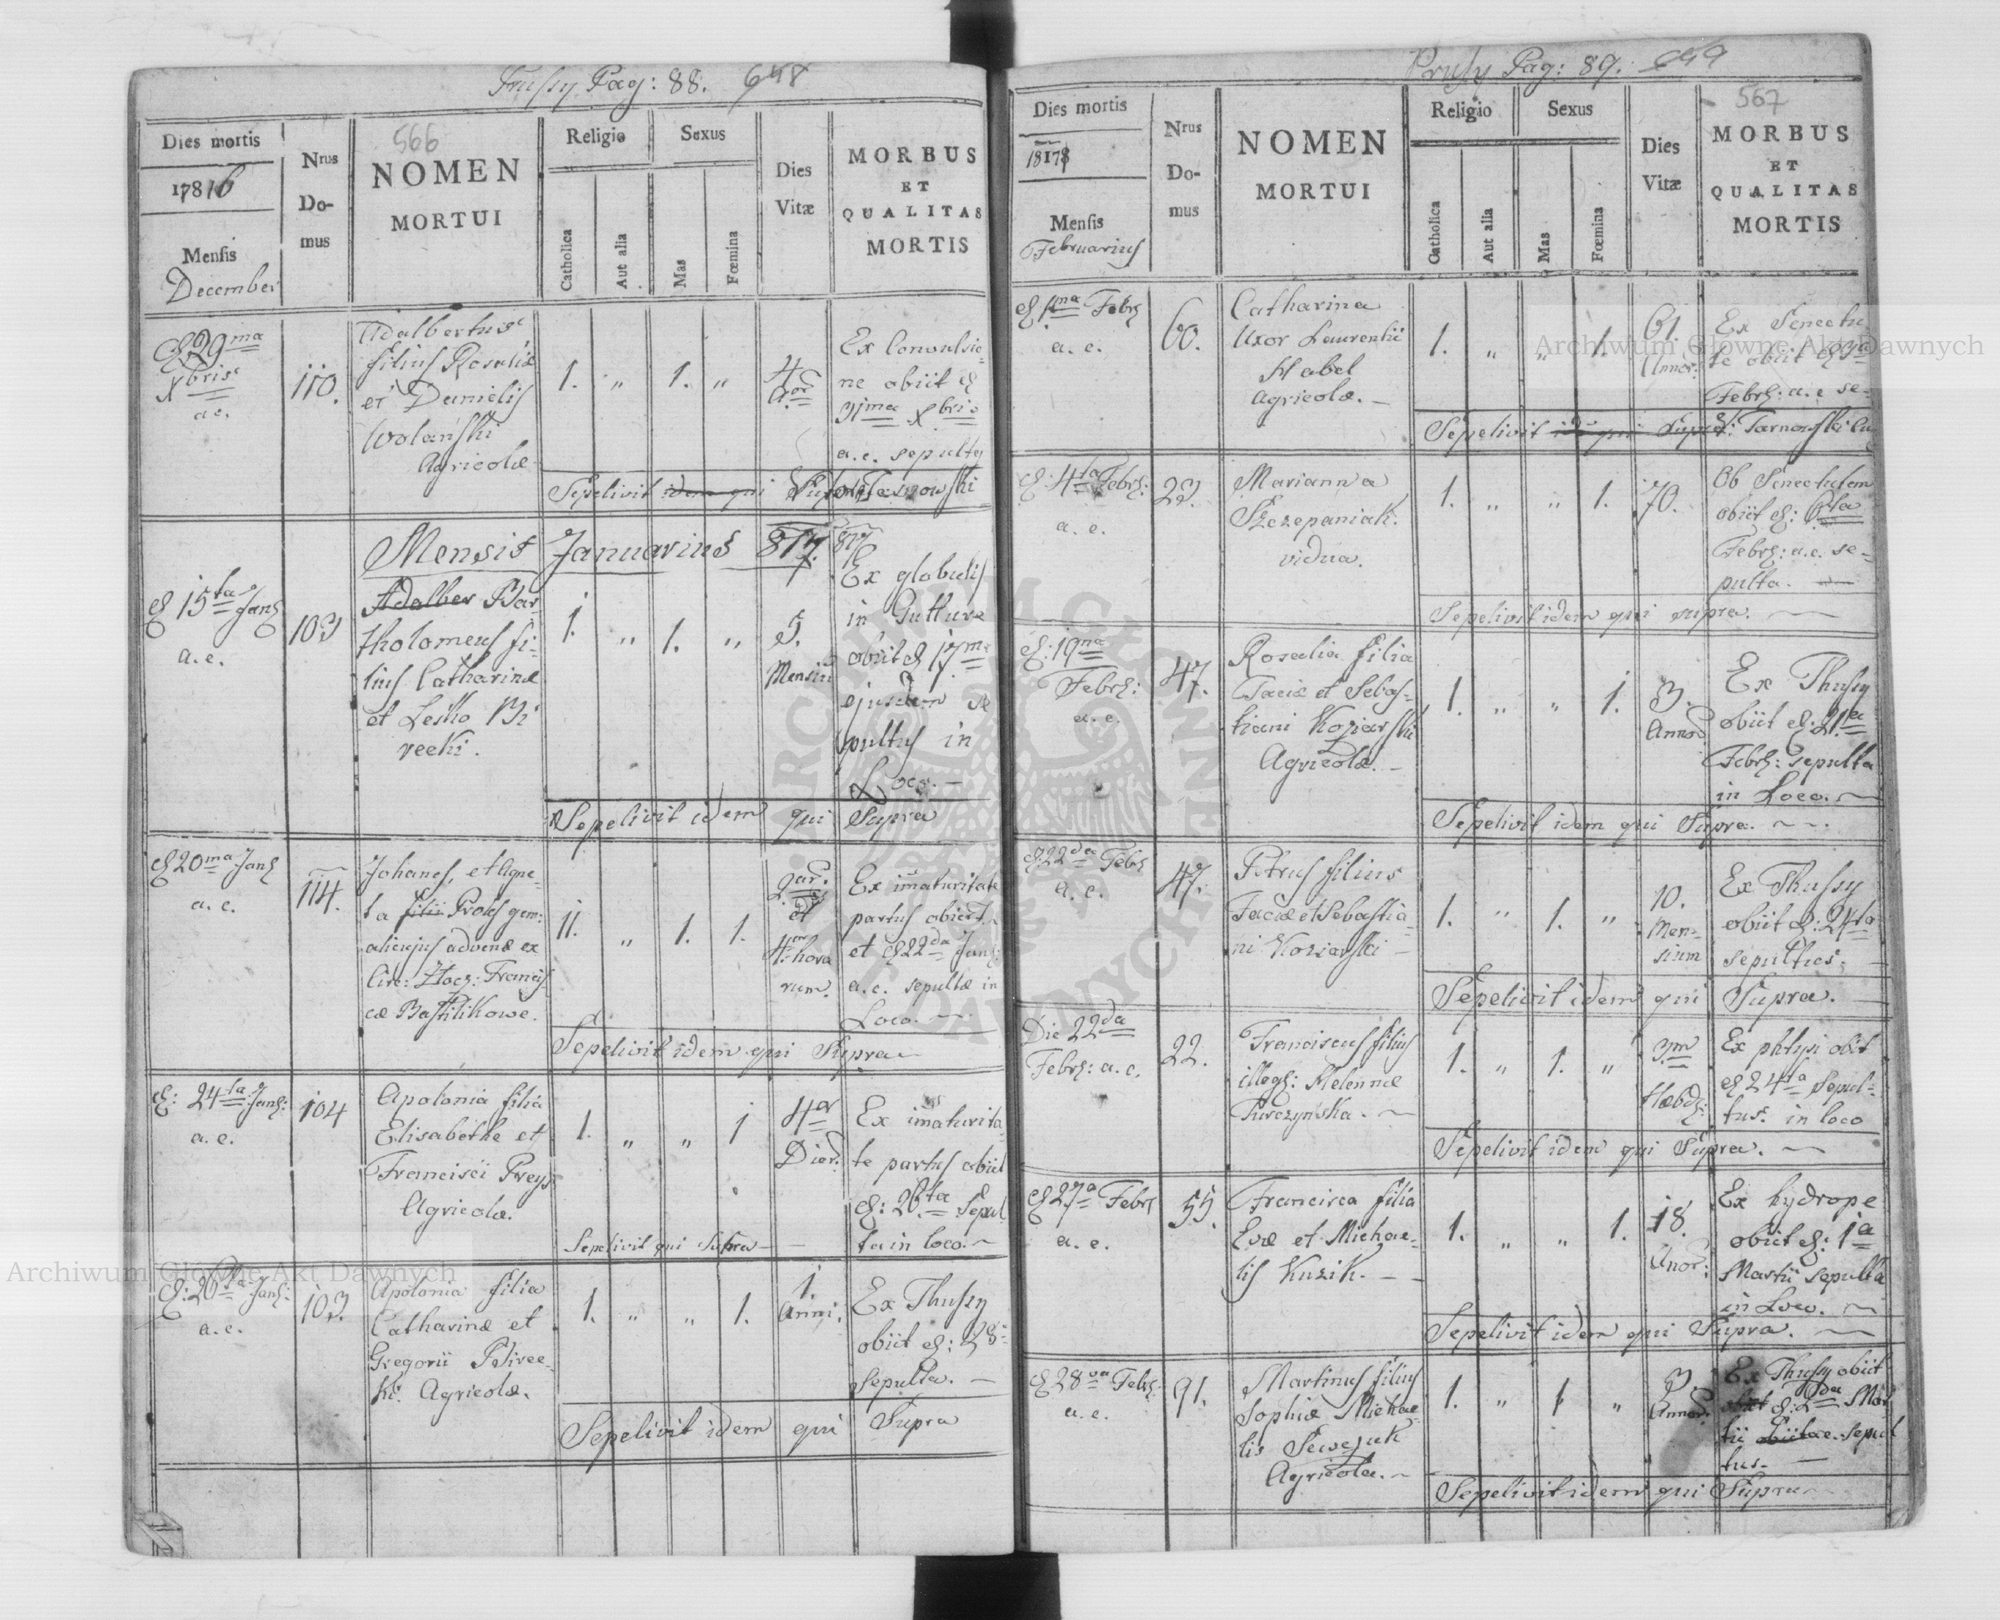 Prussy Pag: 88. 648
Dies mortis
17816
Mensis
December
Nrus
Do-
mus
566
NOMEN
MORTUI
Religio
Catholica
Aut alia
Sexus
Mas
Fœmina
Dies
Vitæ
MORBUS
ET
QUALITAS
MORTIS
29ma
Xbris
a.e.
110.
Adalbertus
filius Rosaliæ
et Danielis
Wolański
Agricolæ
1. " 1. "
4
Ex Convulsio-
ne obiit
31ma Xbris
a.e. sepultus
Sepelivit idem qui Supra Tarnowski
Mensis Januarius 817. 817
15ta Jan
a.e.
103
Adalber Bar-
tholomeus fi-
lius Catharinæ
et Lesko Bi
recki.
1. " 1. "
5.
Mensiu
Ex globulis
in Gutture
obiit 17ma
ejusdem se
pultus in
Loco. –
Sepelivit idem qui Supra
20ma Jan
a.e.
114.
Johanes, et Agne-
ta filii Proles gem:
alicujus advenæ ex
Circ: Złocz: Francis
cæ Basilikowe.
11. " 1. 1.
2ar.
et
4. hora
rum.
Ex imaturitate
partus obiert.
et 22da Jan:
a.e. sepultæ in
Loco. ~
Sepelivit idem qui Supra ~
24ta Jan:
a.e.
104
Apolonia filia
Elisabethe et
Francisci Preys
Agricolæ.
1. " " 1
4or
Dier:
Ex imaturita-
te partus obiit
26ta Sepul
ta in loco. ~
Sepelivit qui Supra –
26ta Jan:
a.e.
103.
Apolonia filia
Catharinæ et
Gregorii Birec-
ki Agricolæ.
1. " " 1.
1.
Anni.
Ex Thussy
obiit 28
sepulta. –
Sepelivit idem qui Supra
Prussy Pag: 89. 649
Dies mortis
18178
Mensis
Februarius
Nrus
Do-
mus
NOMEN
MORTUI
Religio
Catholica
Aut alia
Sexus
Mas
Fœmina
Dies
Vitæ
567
MORBUS
ET
QUALITAS
MORTIS
1ma Febr
a.e.
60.
Catharina
Uxor Laurentii
Habel
Agricolæ. –
1. " " 1.
61
Annor:
Ex Senectu
te obiit 3tia
Febr: a.e se-
Sepelivit idem qui Supra: Tarnowski
4ta Febr:
a.e.
23.
Marianna
Szczepaniak.
vidua.
1. " " 1.
70.
Ob Senectutem
obiit 6ta
Febr: a.e. se-
pulta.
Sepelivit idem qui supra. ~
19na
Febr:
a.e.
47.
Rosalia filia
Taciæ et Sebas-
tiani Koziarski
Agricolæ. –
1. " " 1.
3.
Annor
Ex Thussy
obiit 21a
Febr: sepulta
in Loco. ~
Sepelivit idem qui Supra. ~
22da Febr
a.e.
47.
Petrus filius
Taciæ et Sebastia-
ni Koziarski –
1. " 1. "
10.
Men-
sium
Ex Thussy
obiit 24ta
sepultus.
Sepelivit idem qui Supra.
Die 22da
Febr: a.e.
22.
Franciscus filius
illeg: Helennæ
Purczyńska. ~
1. " 1. "
3m
Hæbd:
Ex phtysi obiit
24ta sepul-
tus in loco
Sepelivit idem qui Supra. ~
27a Febr
a.e.
55.
Francisca filia
Evæ et Michae-
lis Kuzik. –
1. " " 1.
18.
Anor:
Ex hydrope
obiit 1a
Martii sepulta
in Loco. ~
Sepelivit idem qui Supra. ~
28va Febr:
a.e.
91.
Martinus filius
Sophiæ Michae-
lis Sewczuk
Agricola. ~
1. " 1 "
3
Annor.
Ex Thussy obiit
obiit 2da Mar
tii a.e. sepul
tus. –
Sepelivit idem qui Supra
Archiwum Główne Akt Dawnych
Archiwum Główne Akt Dawnych
ARCHIWUM GŁÓWNE AKT DAWNYCH